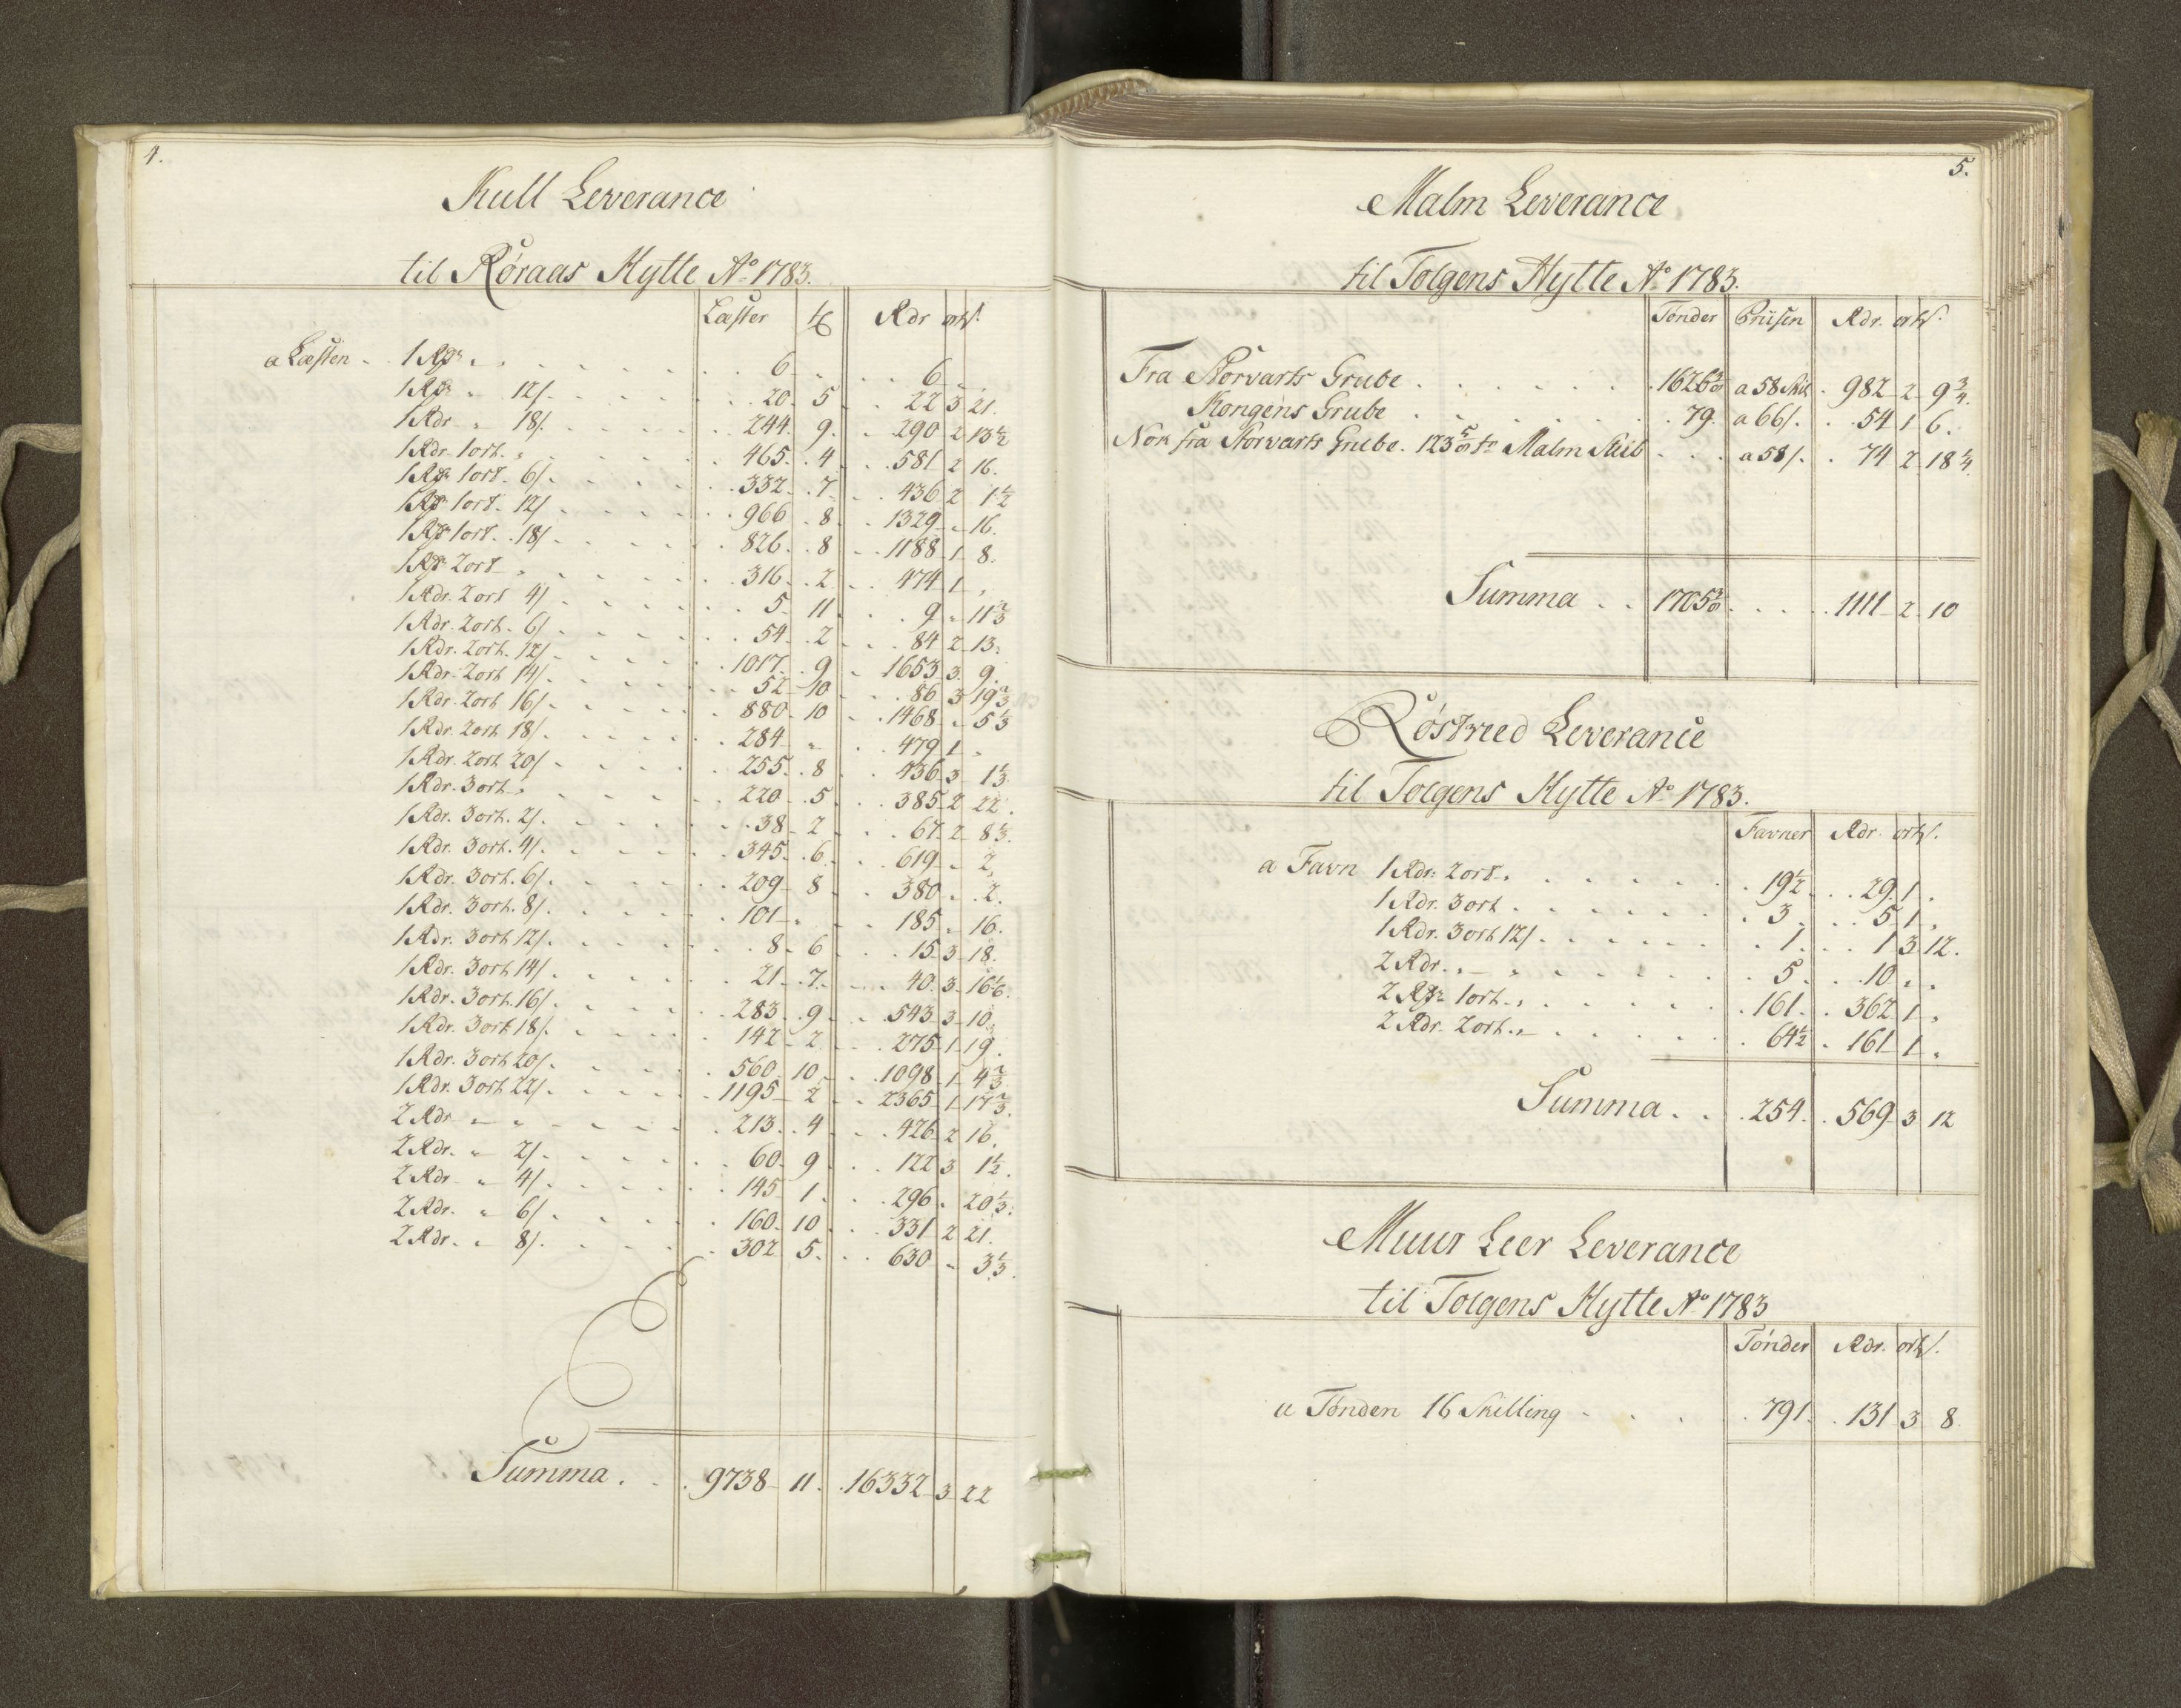 4.
Kull Leverance
til Røraas Hytte Ao 1783.
Læster tt Rdr ort s.
a Læsten 1 Rdr " 6 " 6 " "
1 Rdr " 12 s. 20 5 22 3 21.
1 Rdr " 18 s. 244. 9. 290 2 13 1/2
1 Rdr 1 ort. " 465. 4 581 2 16.
1 Rdr 1 ort. 6 s. 332. 7 436 2 1 1/2
1 Rdr 1 ort. 12 s. 966. 8. 1329 " 16.
1 Rdr 1 ort. 18 s. 826. 8 1188 1 8.
1 Rdr 2 ort " 316. 2 474 1 "
1 Rdr. 2 ort 4 s. 5 11 9 " 11 2/3
1 Rdr. 2 ort. 6 s. 54. 2 84 2 13.
1 Rdr. 2 ort. 12 s. 1017. 9 1653 3 9.
1 Rdr. 2 ort 14 s. 52 10 86 3 19 2/3
1 Rdr. 2 ort 16 s. 880 10 1468 " 5 1/3
1 Rdr. 2 ort 18 s. 284 " 479 1 "
1 Rdr. 2 ort 20 s. 255. 8 436 3 1 1/3
1 Rdr. 3 ort. " 220 5 385 2 22.
1 Rdr. 3 ort. 2 s. 38 2 67 2 8 1/3.
1 Rdr. 3 ort. 4 s. 345. 6. 619 " 2.
1 Rdr. 3 ort. 6 s. 209 8 380 " 2.
1 Rdr. 3 ort. 8 s. 101 " 185 " 16.
1 Rdr. 3 ort 12 s. 8 6 15 3 18.
1 Rdr. 3 ort 14 s. 21 7. 40. 3 16 1/6.
1 Rdr. 3 ort. 16 s. 283 9 543 3 10.
1 Rdr. 3 ort 18 s. 142 2 275 1 19.
1 Rdr. 3 ort 20 s. 560 10 1098 1 4 2/3
1 Rdr. 3 ort 22 s. 1195 2 2365 1 17 2/3.
2 Rdr " " 213. 4 426 2 16.
2 Rdr. " 2 s. 60 9 122 3 1 1/2.
2 Rdr " 4 s. 145 1. 296 " 20 1/3.
2 Rdr. " 6 s. 160 10 331 2 21.
2 Rdr. " 8 s. 302 5. 630 " 3 1/3.
Summa. 9738 11. 16332 3 22
5.
Malm Leverance
til Tolgens Hytte Ao 1783.
Tønder Priisen Rdr. ort s.
Fra Storvarts Grube 1626 3/8 a 58 Skil. 982 2 9 3/4.
Kongens Grube 79. a 66 s. 54 1 6.
Nok fra Storvarts Grube. 123 5/8 tr Malm Skib a 58 s. 74 2 18 1/4.
Summa 1705 3/8 1111 2 10
Røstved Leverance
til Tolgens Hytte Ao 1783.
Favner Rdr. ort s.
a Favn 1 Rdr. 2 ort. 19 1/2 29 1 "
1 Rdr. 3 ort 3 5 1 "
1 Rdr. 3 ort 12 s. 1. 1 3 12.
2 Rdr. " " 5. 10 " "
2 Rdr 1 ort. 161. 362 1 "
2 Rdr. 2 ort. 64 1/2 161 1 "
Summa. 254. 569 3 12
Muur Leer Leverance
til Tolgens Hytte Ao 1783
Tønder Rdr. ort s.
a Tønden 16 Skilling 791. 131 3 8